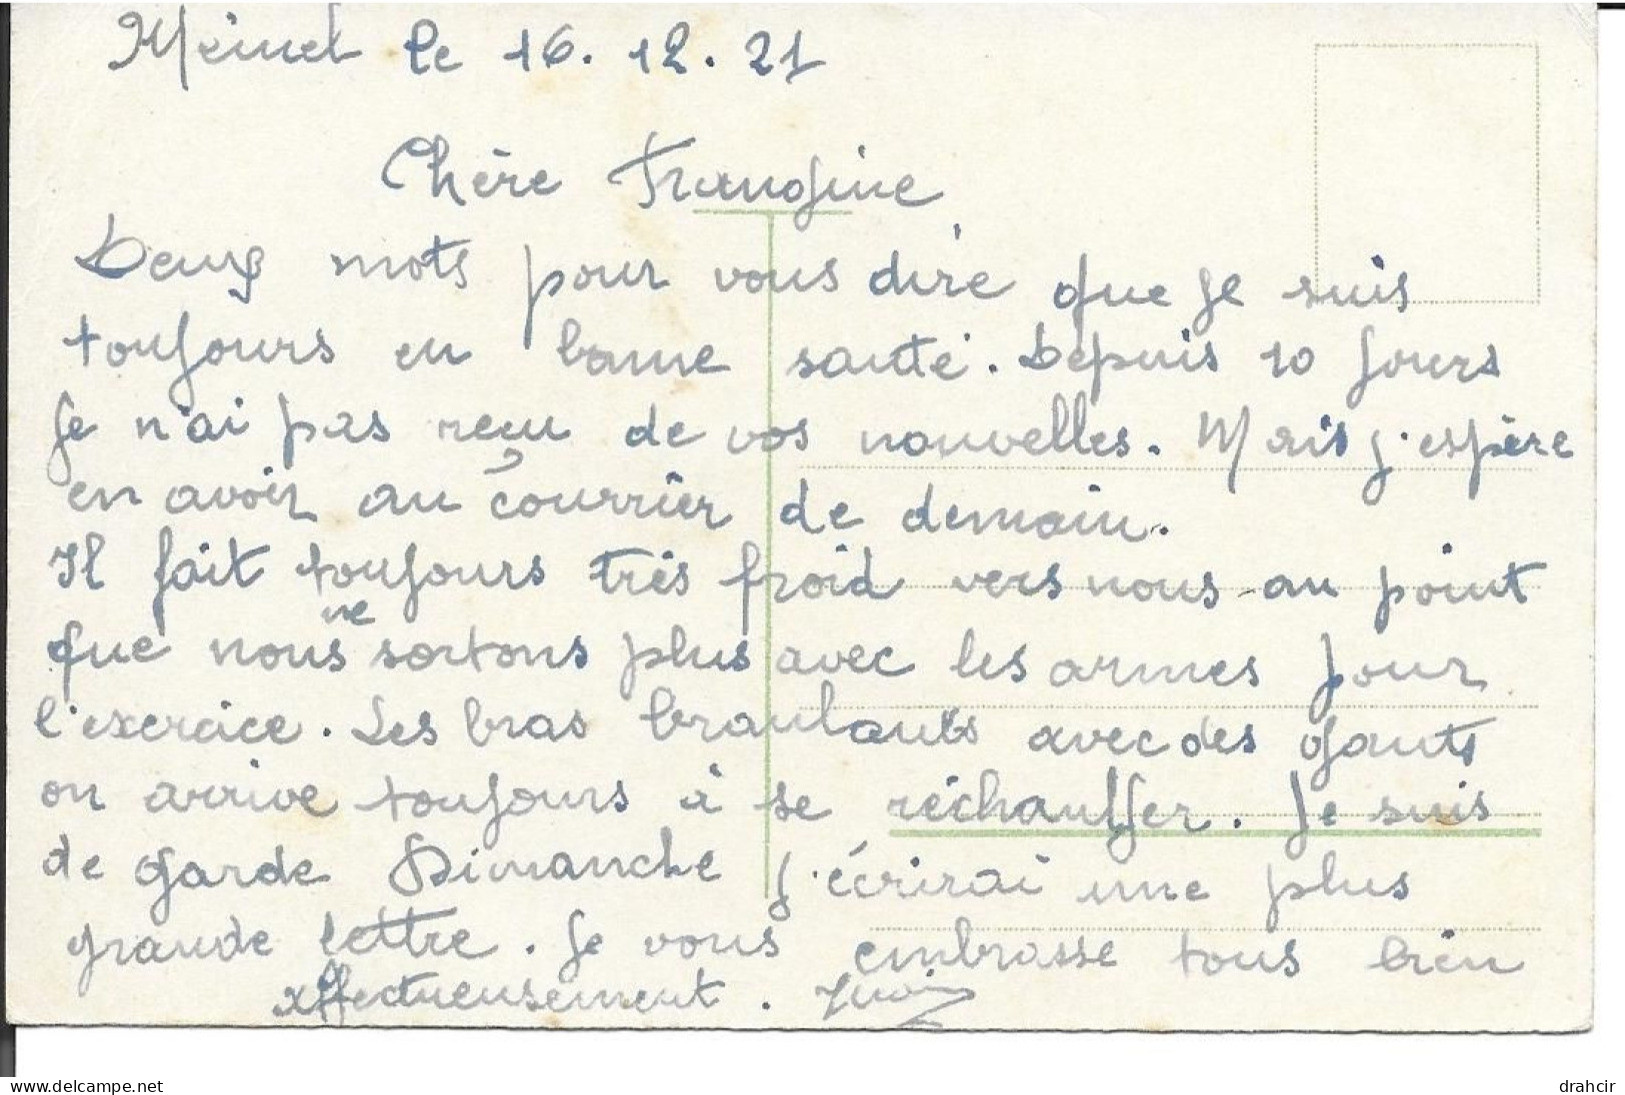 le 16.12.21
Chère Frangine
Deux mots pour vous dire que je suis
toujours en bonne santé. Depuis 10 jours
je n'ai pas reçu de vos nouvelles. Mais j'espère
en avoir au courrier de demain.
Il fait toujours très froid vers nous au point
que nous ne sortons plus avec les armes pour
l'exercice. Les bras branlants avec des gants
on arrive toujours à se réchauffer. Je suis
de garde Dimanche j'écrirai une plus
grande lettre. Je vous embrasse tous bien
affectueusement.
www.delcampe.net
drahcir